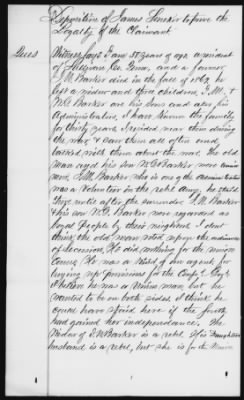 Deposition of James Sensir to prove the
Loyalty of the Claimant
Witness says I am 58 years of age a resident
of Sullivan Co. Tenn, and a farmer
J. M. Barker died in the fall of 1869, he
left a widow and three children, J. M. &
W. D. Barker are his sons and also his
Administrators, I have known the family
for thirty years I resided near them during
the war, & saw them all often and
talked with them about the war. the old
man and his son W. D. Barker were union
men. J. M. Barker who is one of the Administrators
was a Volunteer in the rebel army, he staid
there until after the surrender. J. M. Barker
& his son W. D. Barker were regarded as
loyal People by their neighbors I dont
think the old man voted upon the ordinance
of secession, He did nothing for the union
Cause, He was a kind of an agent for
buying up provisions for the Confed. Gov't
I believe he was a Union man but he
wanted to be on both sides I think he
could have staid here if the south
had gained her independence. The
Widow of J. M Barker is a rebel. His Daughters
husband is a rebel, but she is for the Union